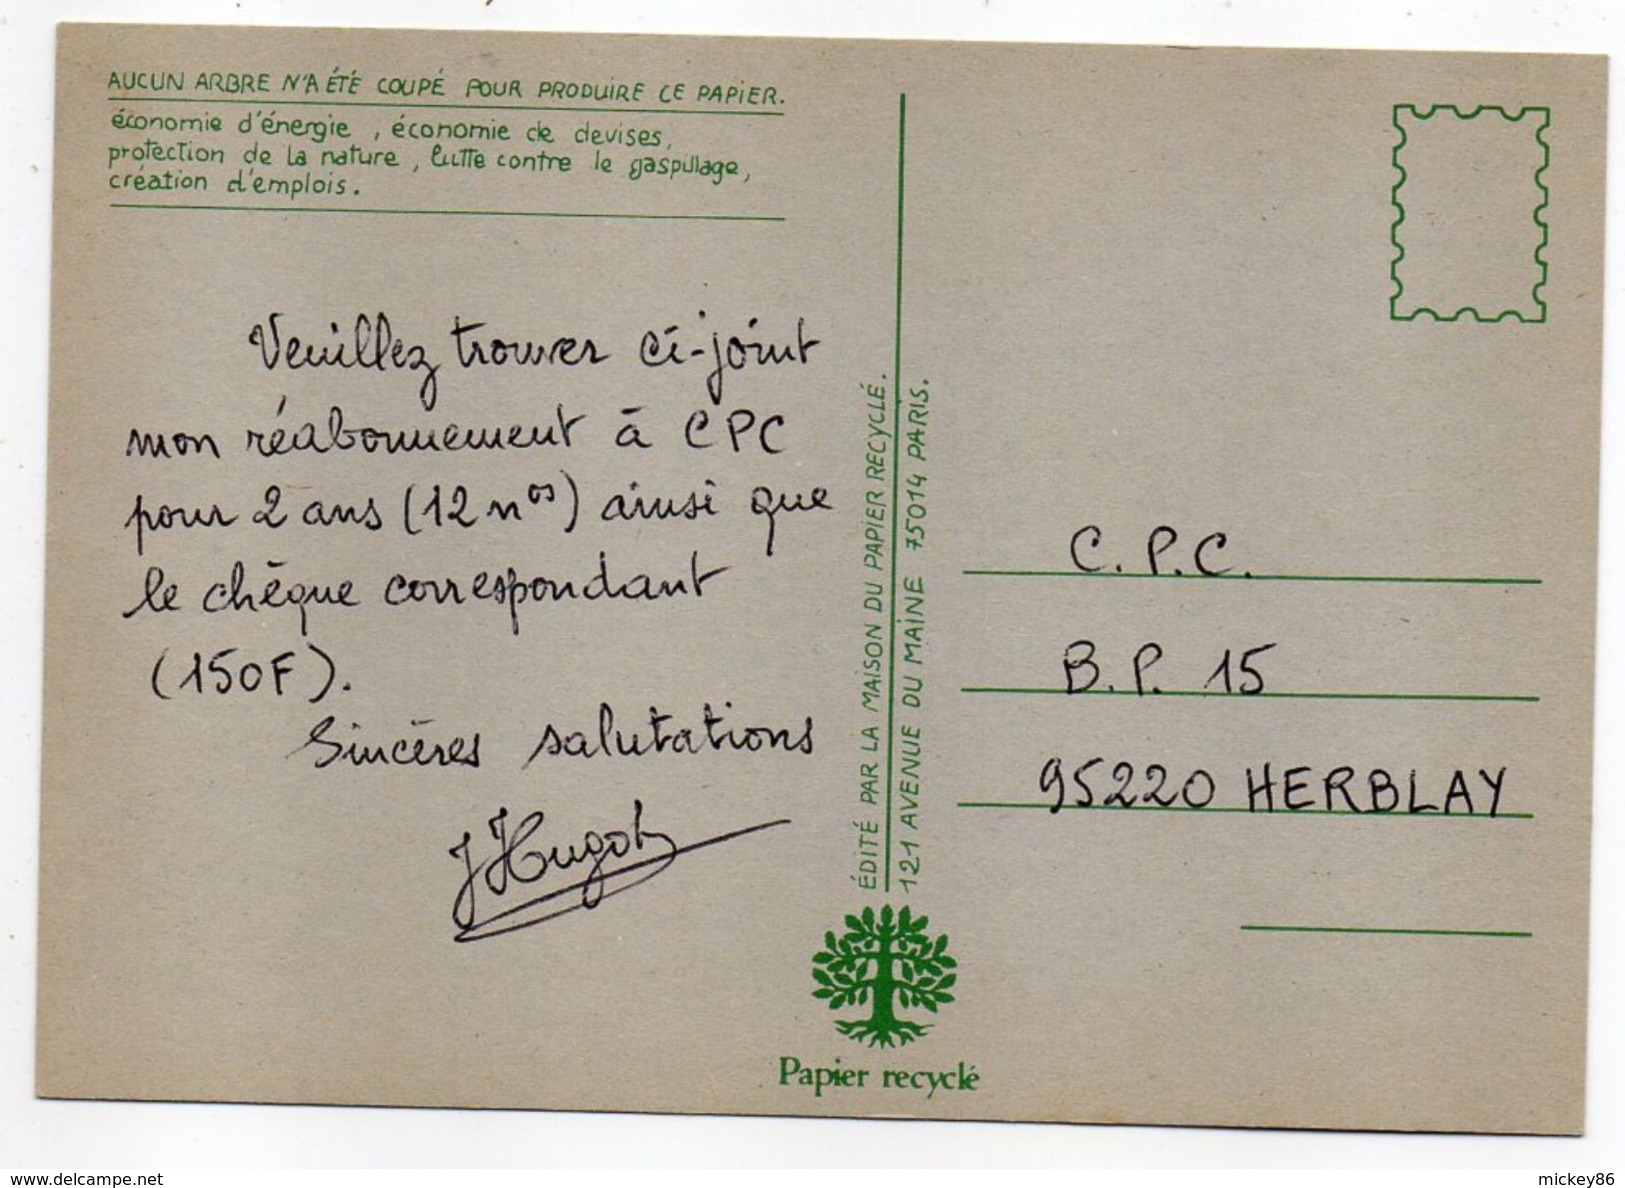 AUCUN ARBRE N'A ÉTÉ COUPÉ POUR PRODUIRE CE PAPIER.
économie d'énergie, économie de devises,
protection de la nature, lutte contre le gaspillage,
création d'emplois.
Veuillez trouver ci-joint
mon réabonnement à CPC
pour 2 ans (12 nos) ainsi que
le chèque correspondant
(150F).
Sincères salutations
JHugot
ÉDITÉ PAR LA MAISON DU PAPIER RECYCLÉ.
121 AVENUE DU MAINE 75014 PARIS.
Papier recyclé
C.P.C.
B.P. 15
95220 HERBLAY
delcampe.net
mickey86